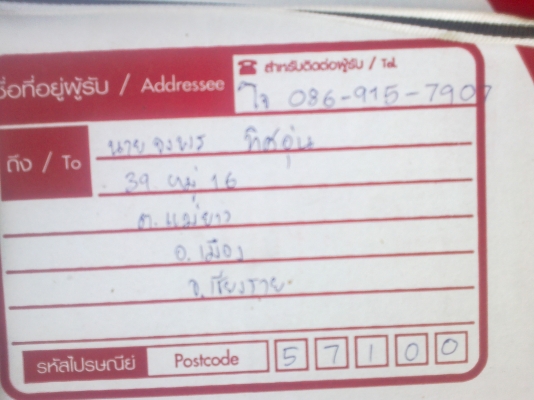 ชื่อที่อยู่ผู้รับ / Addressee
สำหรับติดต่อผู้รับ / Tel.
โจ 086-915-7907
ถึง / To
นาย จงพร ทิศอุ่น
39 หมู่ 16
ต. แม่ยาว
อ. เมือง
จ. เชียงราย
รหัสไปรษณีย์ Postcode 57100